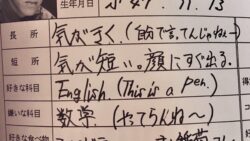 生年月日 S.47. 11. 13
長所 気がきく。(自分で言ってんじゃねー)
短所 気が短い。顔にすぐ出る。
好きな科目 English. (This is a pen.)
嫌いな科目 数学 (やってらんね〜)
好きな食べ物